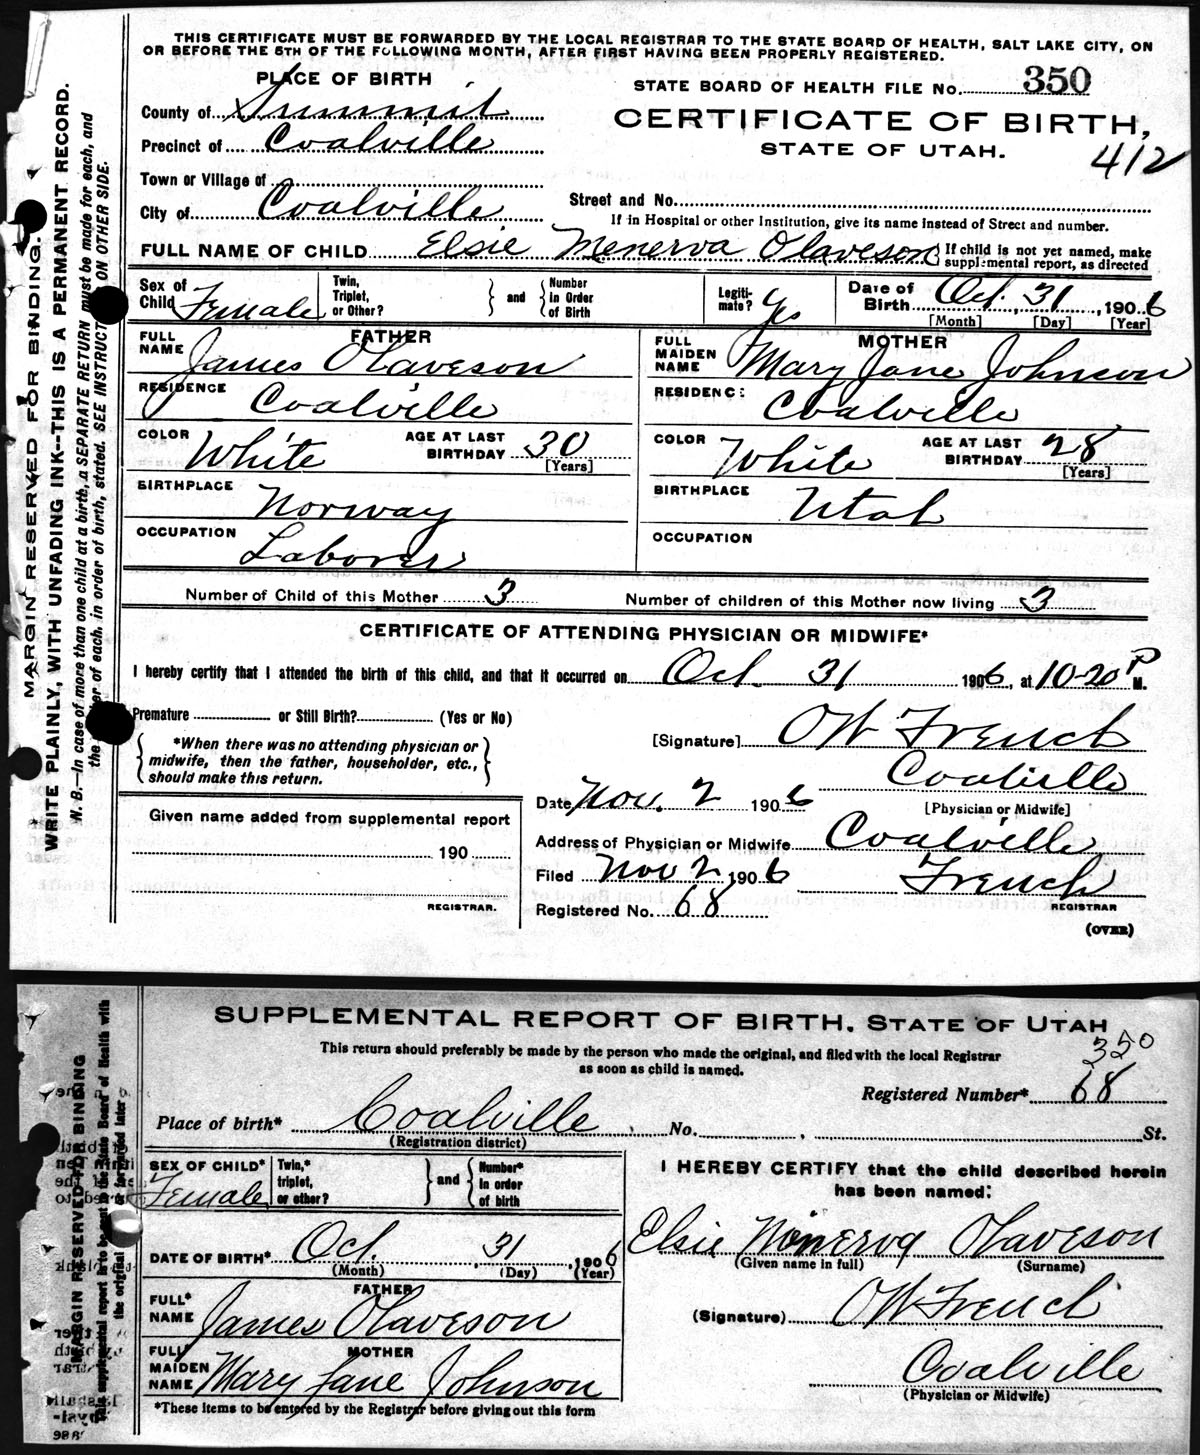 THIS CERTIFICATE MUST BE FORWARDED BY THE LOCAL REGISTRAR TO THE STATE BOARD OF HEALTH, SALT LAKE CITY, ON
OR BEFORE THE 5TH OF THE FOLLOWING MONTH, AFTER FIRST HAVING BEEN PROPERLY REGISTERED.
PLACE OF BIRTH
STATE BOARD OF HEALTH FILE No. 350
County of Summit
CERTIFICATE OF BIRTH,
Precinct of Coalville
STATE OF UTAH.
412
Town or Village of
Street and No.
City of Coalville
If in Hospital or other Institution, give its name instead of Street and number.
FULL NAME OF CHILD Elsie Menerva Olaveson
If child is not yet named, make
supplemental report, as directed
Sex of Child Female
Twin, Triplet, or Other?
and
Number In Order of Birth
Legiti-mate? Yes
Date of Birth Oct. 31, 1906
[Month] [Day] [Year]
FATHER
FULL NAME James Olaveson
MOTHER
FULL MAIDEN NAME Mary Jane Johnson
RESIDENCE Coalville
RESIDENCE: Coalville
COLOR White
AGE AT LAST BIRTHDAY 30
[Years]
COLOR White
AGE AT LAST BIRTHDAY 28
[Years]
BIRTHPLACE Norway
BIRTHPLACE Utah
OCCUPATION Laborer
OCCUPATION
Number of Child of this Mother 3
Number of children of this Mother now living 3
CERTIFICATE OF ATTENDING PHYSICIAN OR MIDWIFE*
I hereby certify that I attended the birth of this child, and that it occurred on Oct. 31 1906, at 10-20 P M.
Premature or Still Birth? (Yes or No)
[Signature] OW French
*When there was no attending physician or
midwife, then the father, householder, etc.,
should make this return.
Coalville
Date Nov. 2 1906
[Physician or Midwife]
Given name added from supplemental report
Address of Physician or Midwife Coalville
190
Filed Nov 2 1906 French
REGISTRAR.
REGISTRAR
Registered No. 68
(OVER)
MARGIN RESERVED FOR BINDING.
WRITE PLAINLY, WITH UNFADING INK--THIS IS A PERMANENT RECORD.
N. B.—In case of more than one child at a birth, a SEPARATE RETURN must be made for each, and
the of each, in order of birth, stated. SEE INSTRUCT ON OTHER SIDE.
SUPPLEMENTAL REPORT OF BIRTH, STATE OF UTAH
This return should preferably be made by the person who made the original, and filed with the local Registrar
as soon as child is named.
350
Registered Number* 68
Place of birth* Coalville, No. , St.
(Registration district)
SEX OF CHILD* Female
Twin,* triplet, or other?
and
Number* in order of birth
I HEREBY CERTIFY that the child described herein
has been named:
DATE OF BIRTH* Oct. , 31 , 1906
(Month) (Day) (Year)
Elsie Minerva Olaveson
(Given name in full) (Surname)
FATHER
FULL* NAME James Olaveson
(Signature) OW French
MOTHER
FULL* MAIDEN NAME Mary Jane Johnson
Coalville
(Physician or Midwife)
*These items to be entered by the Registrar before giving out this form
MARGIN RESERVED FOR BINDING